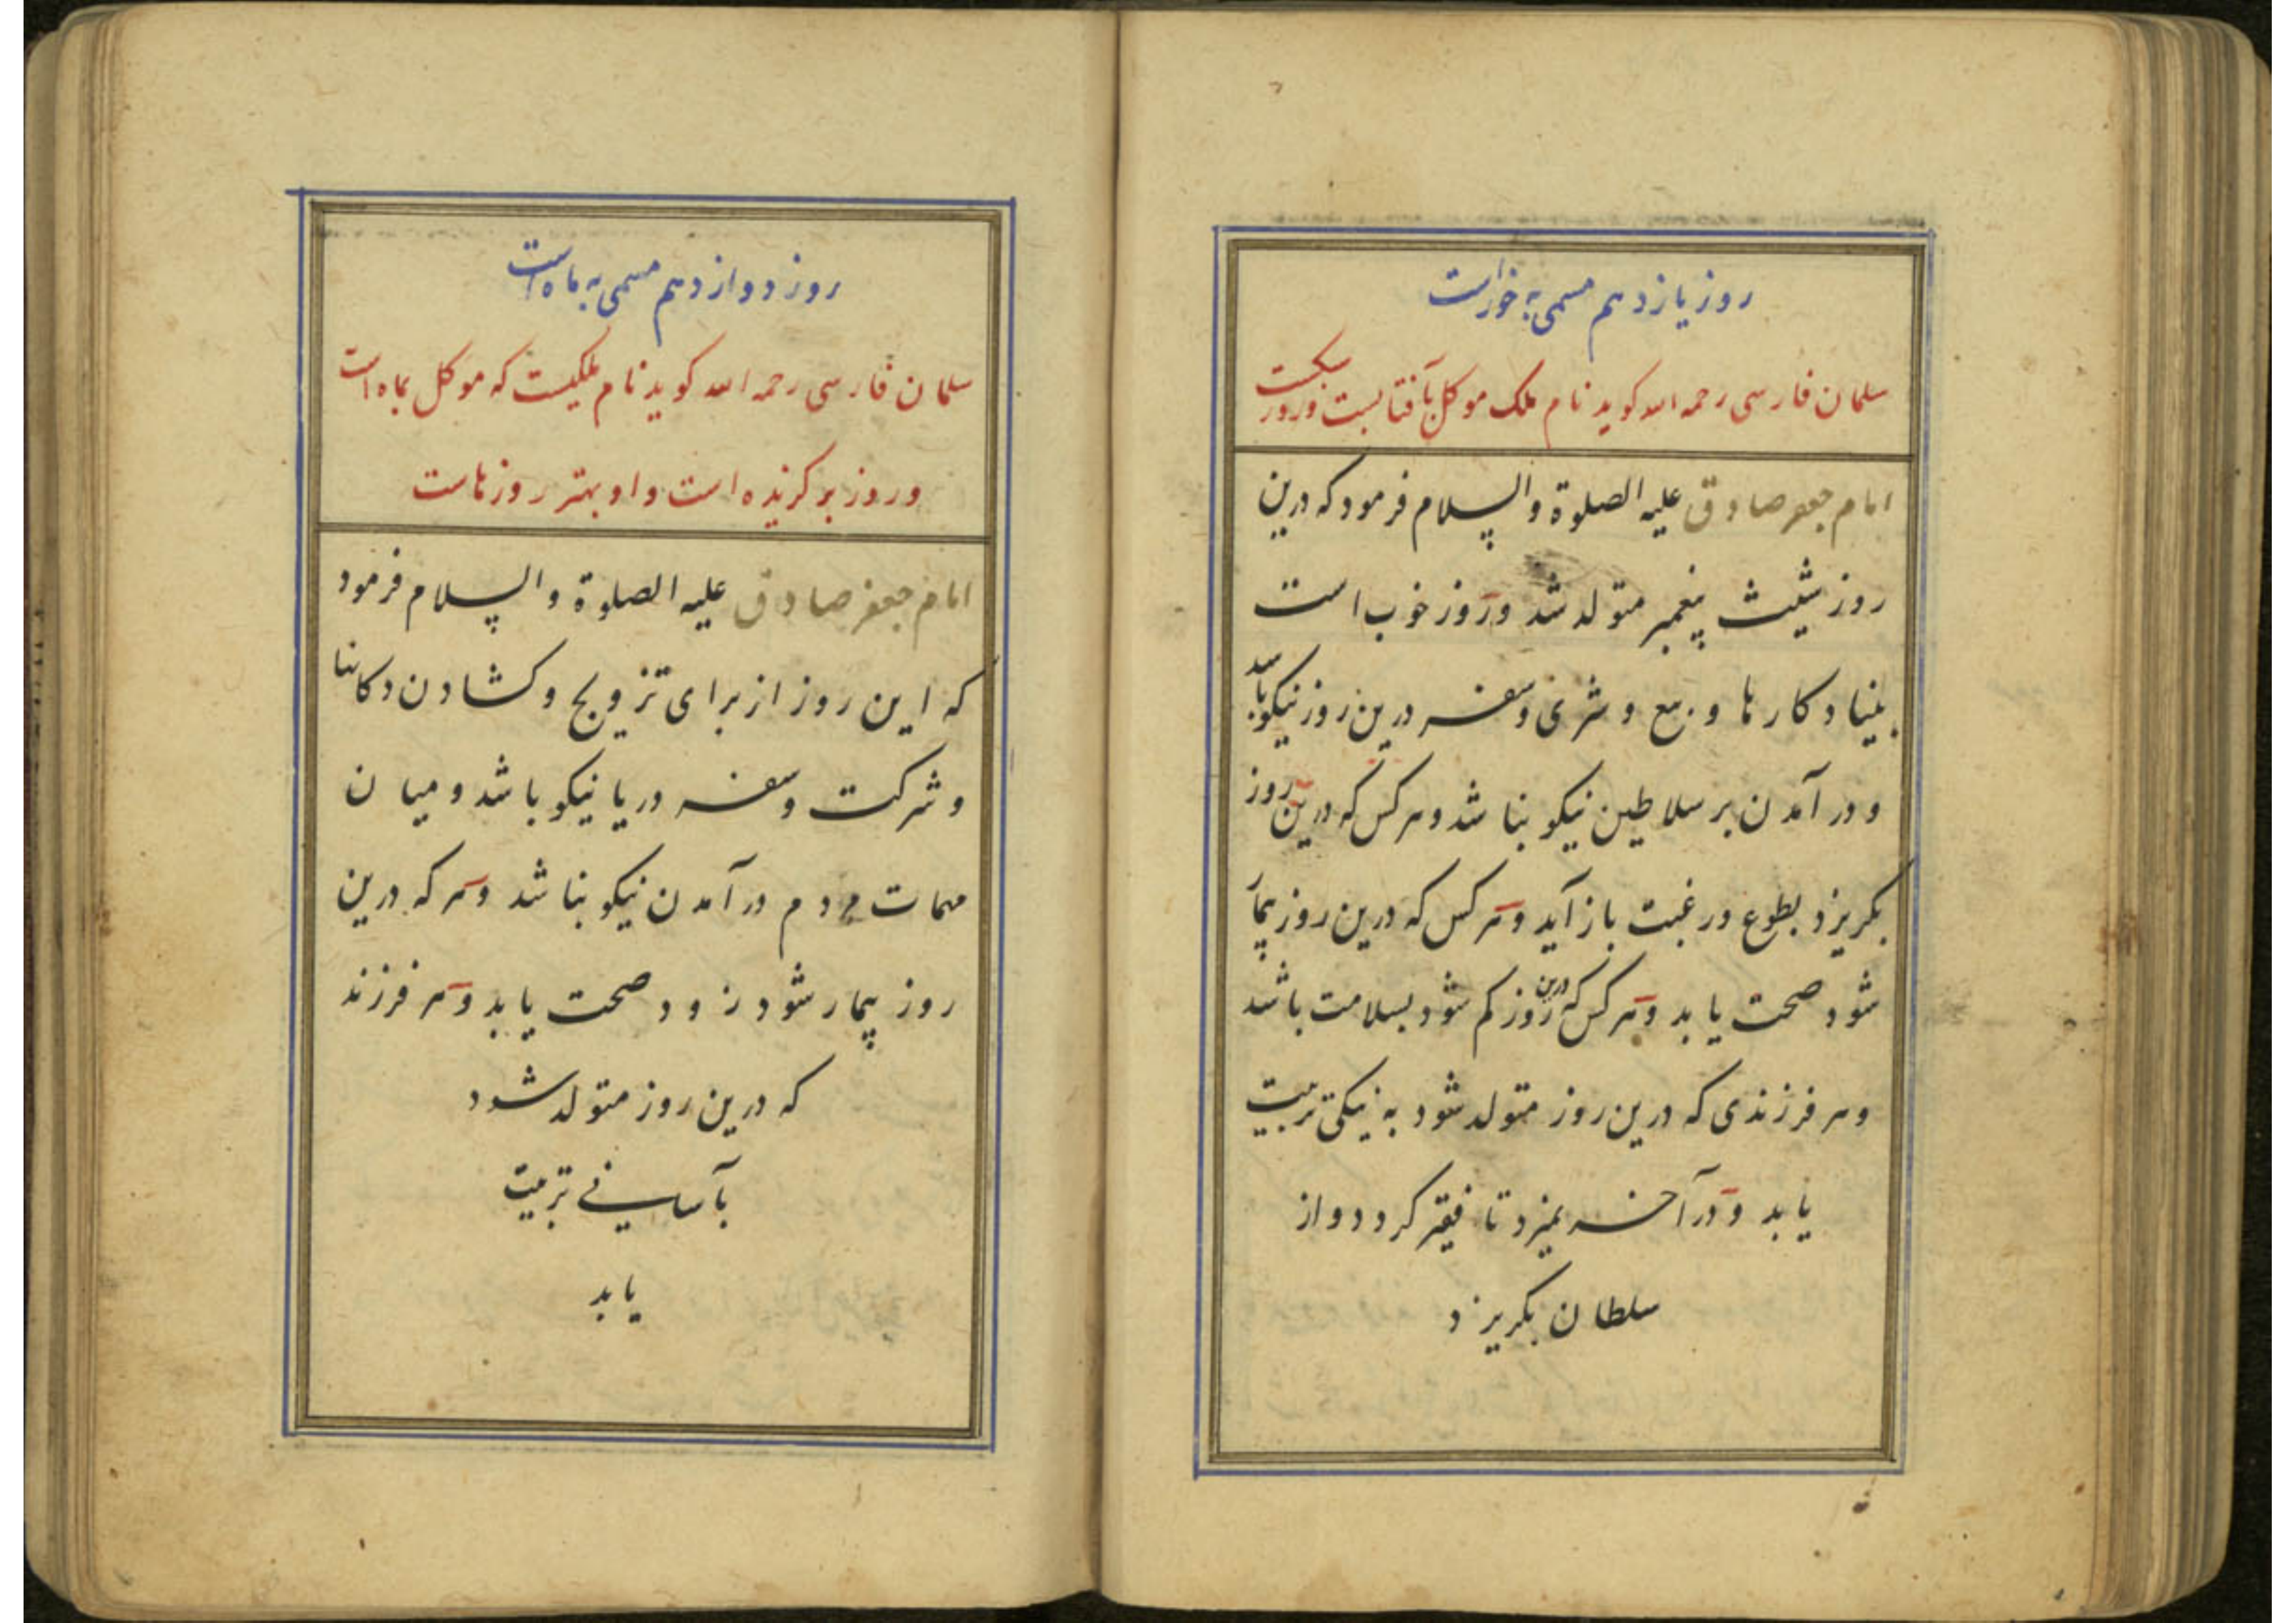 روز یازدهم مسمی به خوراست
سلمان فارسی رحمه الله کوید نام ملک موکل بآفتابست وروز سبکست
امام جعفر صادق علیه الصلوة والسلام فرمود که درین
روز شیث پیغمبر متولد شد وروز خوب است
بنیاد کارها و بیع و شری وسفر درین روز نیکو باشد
و در آمدن بر سلاطین نیکو نباشد وهر کس که درین روز
بکریزد بطوع ورغبت باز آید وهر کس که درین روز بیمار
شود صحت یابد وهر کس که درین روز کم شود بسلامت باشد
وهر فرزندی که درین روز متولد شود به نیکی تربیت
یابد ودر آخر نمیرد تا فقیر کردد واز
سلطان بکریزد
روز دوازدهم مسمی به ماه است
سلمان فارسی رحمه الله کوید نام ملکیست که موکل بماه است
وروز برکزیده است واو بهتر روزهاست
امام جعفر صادق علیه الصلوة والسلام فرمود
که این روز از برای تزویج وکشادن دکانها
وشرکت وسفر دریا نیکو باشد ومیان
مهمات مردم در آمدن نیکو نباشد وهر که درین
روز بیمار شود زود صحت یابد وهر فرزند
که درین روز متولد شود
بآسانی تربیت
یابد